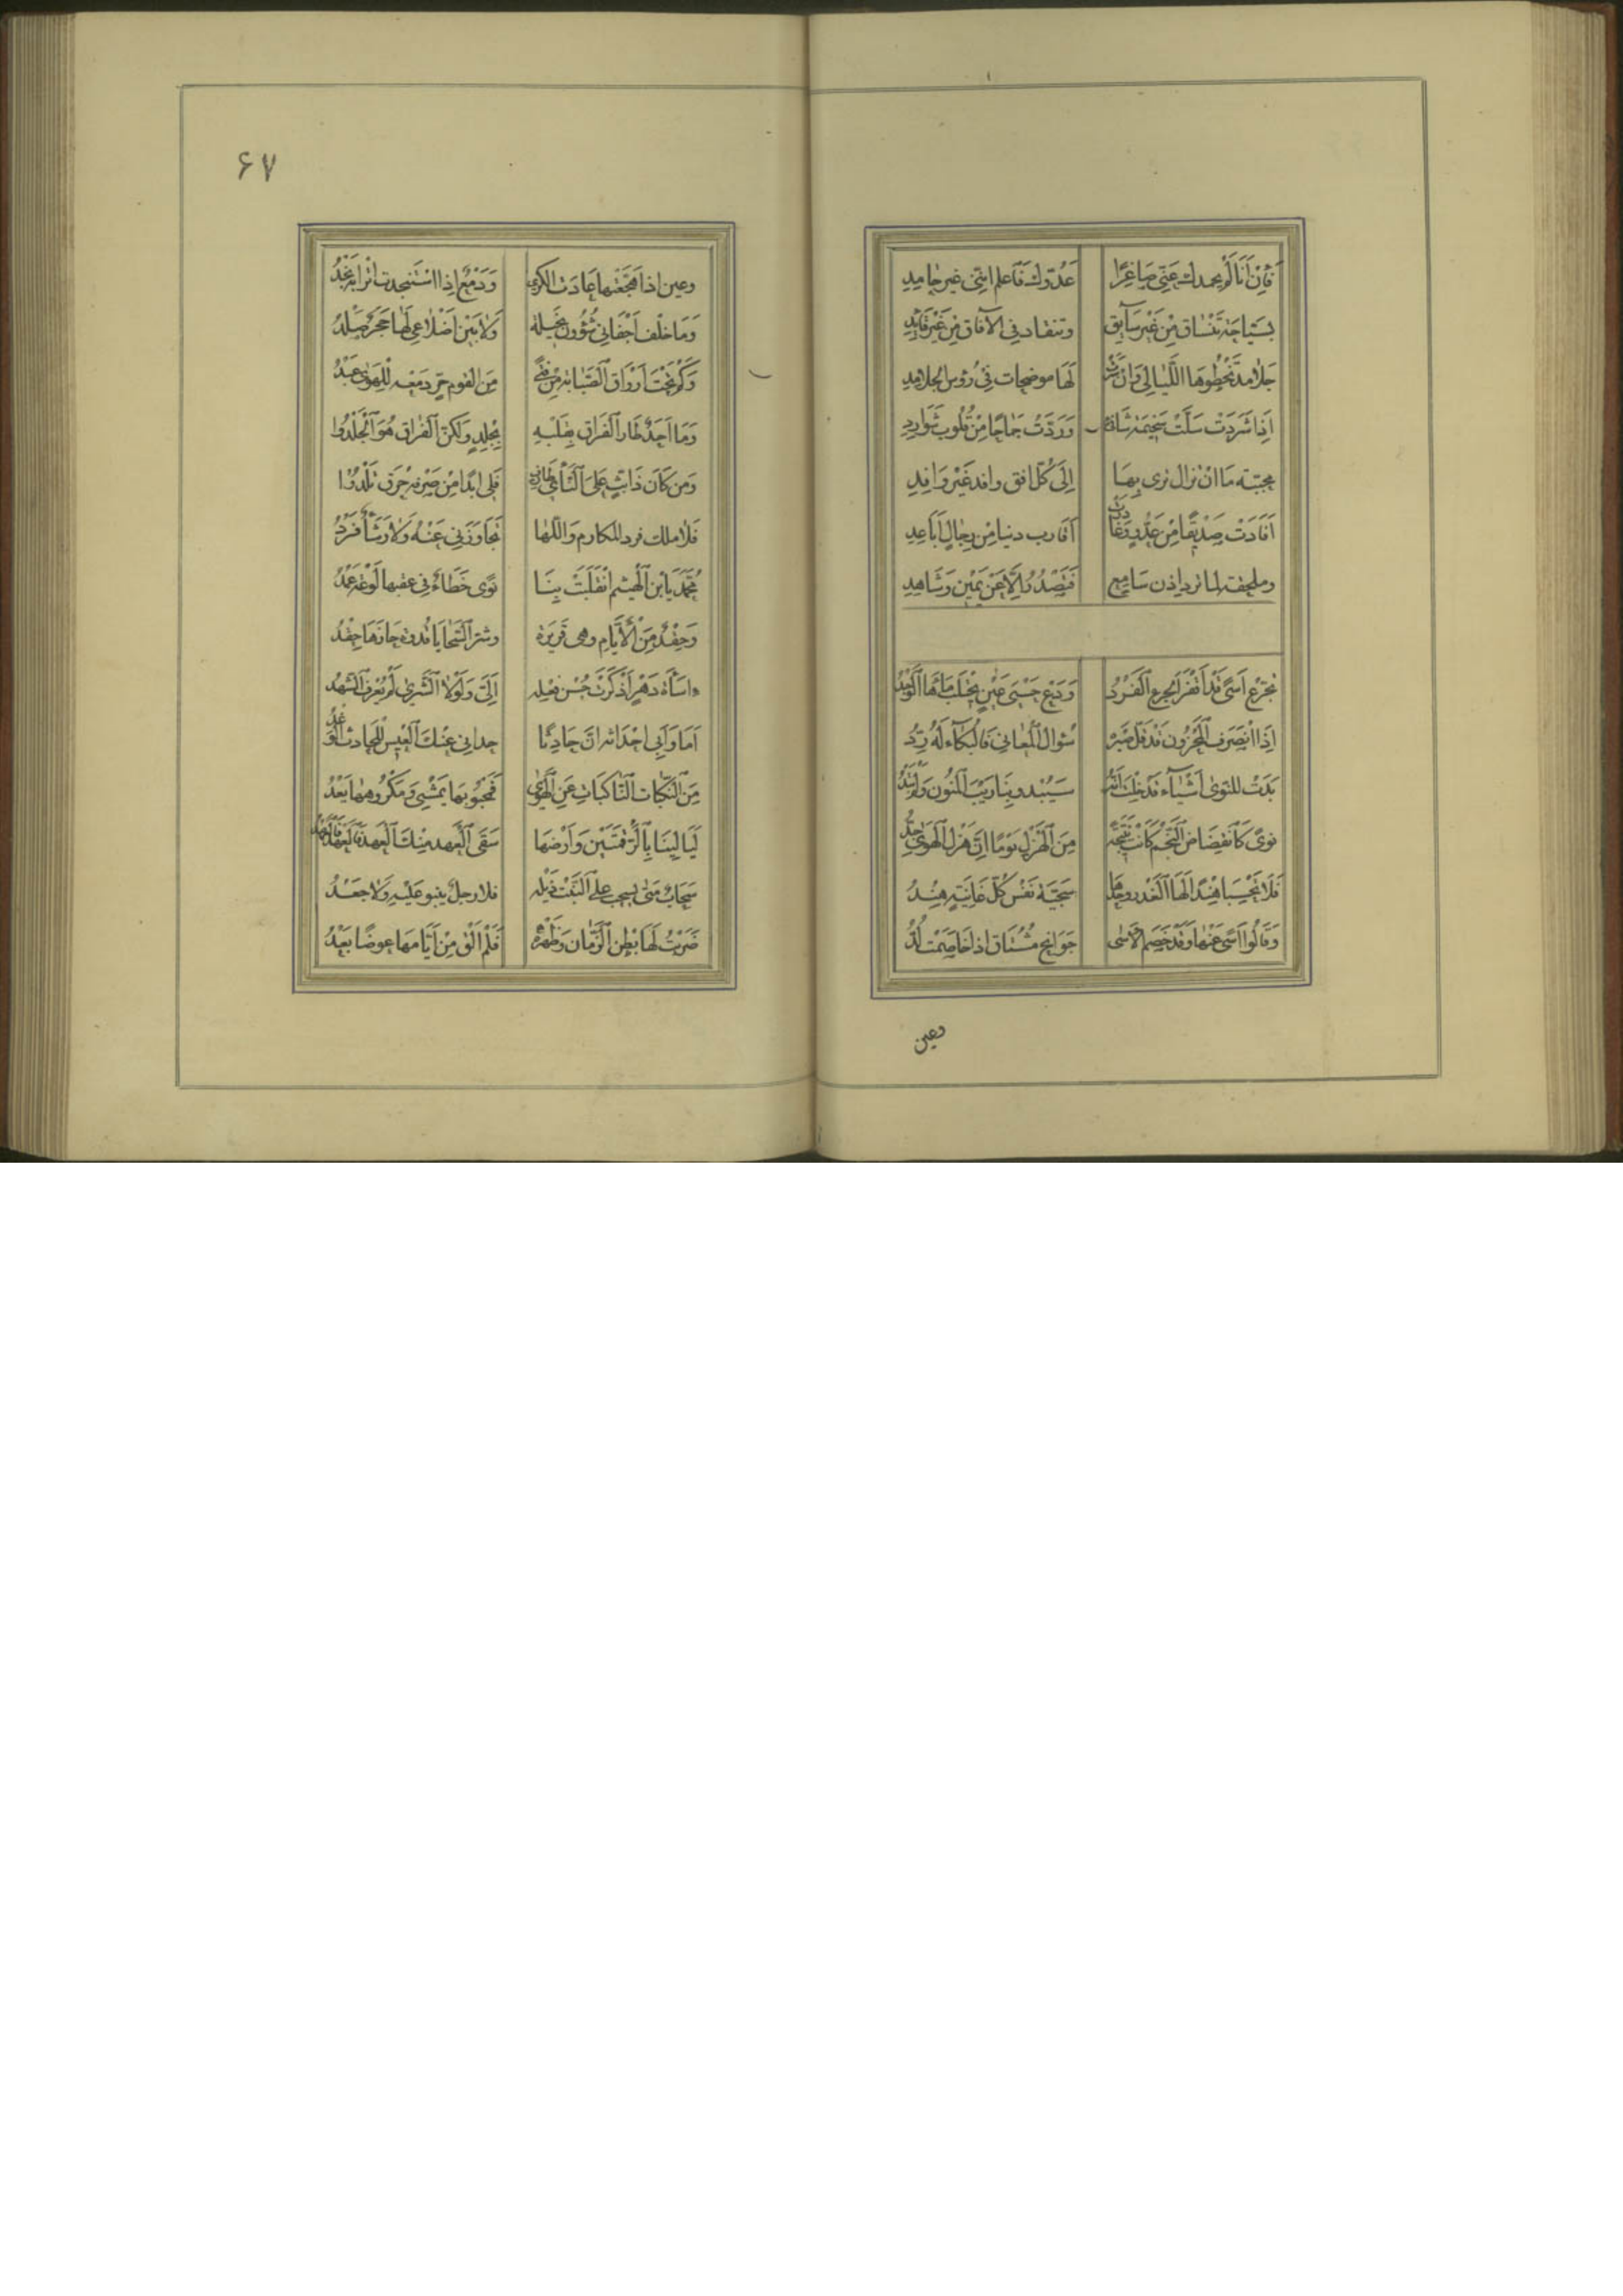 فَاِنْ اَنَا لَمْ يحمدك عَنِّي صَاغِرًا عَدُوّك فَاعلم انَّنِي غير حامِدِ
بسَيّاحَة تَنْسَاق مِنْ غَيْر سَآيق وتنقاد في الآفاق مِنْ غَيْر قَآيِدِ
جَلَامد تَخْطُوهَا اللَّيَالِي وَانْ لَهَا موضحات فِي رُؤسِ الجلامِدِ
اِذَا شَرَدَتْ سَلَّتْ سَخِيمَة شَانِئ وَرَدَّتْ عزوبًا مِنْ قُلُوب شَوَارِدِ
محببّة مَا ان تزال ترى بِهَا اِلَى كُلّ افق وافد غَيْر وَافِدِ
اَفَادَتْ صَدِيقًا مِنْ عَدُوٍّ وَغَادَرَتْ اَقَارب دنيا مِنْ رِجَالٍ اَبَاعِدِ
ومحلفة لما ترد اذن سَامِع فَتَصْدُرُ اِلَّا عَنْ يَمِين وَشَاهِدِ
تجَرّع اَسًى قَدْ اَقْفَرَ الجرع الْفَرْدُ وَدَعْ حِسْىَ عَيْنٍ يَحْتَلب مَآءَهَا الْوَجْدُ
اِذَا انْصَرَفَ الْمحْزُون قَدْ فَلّ صَبْرهُ سُؤال الْمَغَانِي فَالْبُكَآء لَهُ رِدُّ
بَدَتْ للنَّوى اَشْيَآء قَدْ خِلْتُ اَنَّهَا سَيَبْدو بِنَا رَيْبُ الْمَنُون وَلَمْ تَبْدُ
نوىً كَانْقِضَاضِ النَّجْم كَانَتْ نَتِيجَةً مِنَ الْهَزْل يَوْمًا اِنَّ هَزْل الْهَوَى جِدُّ
فَلَا تَحْسِبَا هِنْدًا لَهَا الْغَدْر وحدها سَجِيّةُ نَفْس كُلّ غَانِيَةٍ هِنْدُ
وَقَالُوا اَسًى عَنْهَا وَقَدْ خَصَم الْاسَى جَوَانِح مُشْتَاق اذا خَاصَمَتْ لُدُّ
وعين
۶۷
وعين اذا هَيَّجْتهَا عَادَت الكرى وَدَمْع اِذَا اسْتَنْجدت اترابه نَجْدُ
وَمَا خلْف اَجْفَانِي شُؤُون بَخِيلة وَلَا بَيْن اَضْلَاعِي لَهَا حَجَر صَلْدُ
وَكَمْ تَحْتَ اَرْوَاق الصَّبَابة مِنْ فَتًى مِنَ القوم حرّ دَمْعُه لِلْهَوَى عَبْدُ
وَمَا اَحَدٌ طَار الْفرَاق بِقَلْبِهِ بِجَلْدٍ وَلكنّ الْفرَاق هُوَ الْجَلْدُ
وَمَن كَان ذَا بَثٍّ عَلَى النَّأى طارف فَلِي ابدًا مِنْ صَرْفه حُرَق تُلْدُ
فَلَا ملك فرد المكارم وَاللُّهَا تجَاوَزَنِي عَنْهُ وَلَا رَشَأ فَرْدُ
مُحَمّد يَا ابن الْهَيْثم انْقَلَبَتْ بِنَا نَوًى خَطَاءٌ فِي عقبها لَوْعَة عَمْدُ
وَحِقْدٌ مِنَ الْاَيَّام وهي قَدِيرَة وشرّ السَّجَايَا قُدرة جَارهَا حِقْدُ
اسَآءة دَهْر اَذْكَرَتْ حُسْن فعْله اِلَيَّ وَلَوْلَا الشَّرْى لَمْ يُعْرَف الشَّهْدُ
اَمَا وَاَبِي احْدَاثه انَّ حَادِثًا حداني عَنْكَ الْعيس للْحَادث الْوَغْدُ
مِنَ النَّكَبَات النَّاكبَاتِ عَنِ الْهَوى فَمَحْبُوبهَا يَمْشِي وَمَكْرُوهها يَعْدُ
لَيَالِينَا بِالرَّقْمَتَيْن وَاَرْضهَا سَقَى الْعَهد مِنْكَ الْعَهدُ وَالْعَهْدُ وَالْعَهْدُ
سَحَابٌ مَتَى يسحب عَلَى النَّبْت ذَيْله فلا رجل ينبو عَلَيْهِ وَلَا جَعْدُ
ضَرَبْتُ لَهَا بَطْن الزَّمَان وَظَهْرهُ فَلَمْ اَلْقَ مِنْ اَيَّامهَا عِوَضًا بَعْدُ